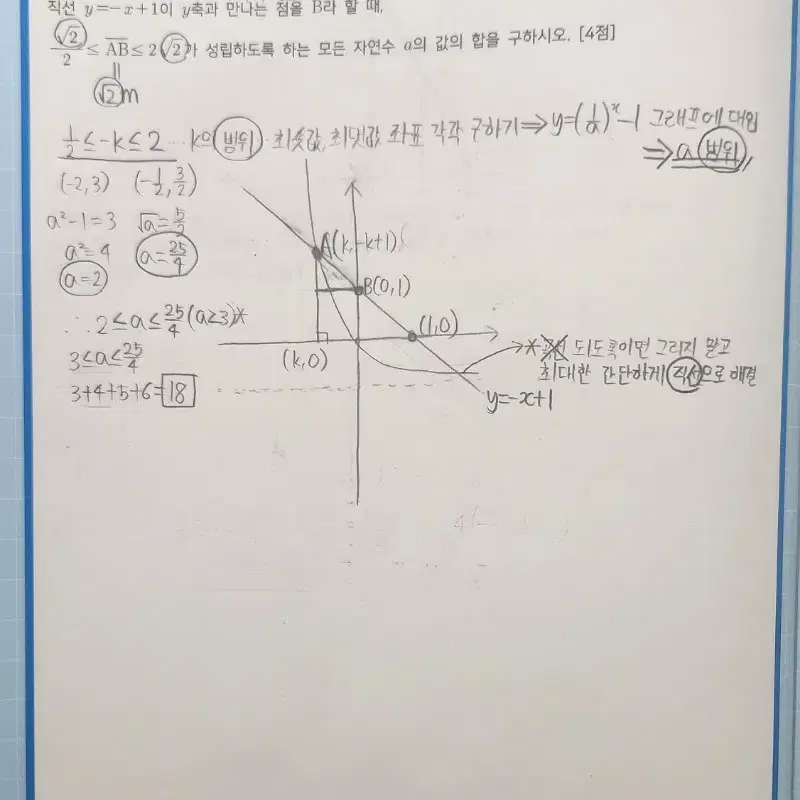 직선 y=-x+1이 y축과 만나는 점을 B라 할 때,
√2/2 ≤ AB ≤ 2√2가 성립하도록 하는 모든 자연수 a의 값의 합을 구하시오. [4점]
||
√2 m
1/2 ≤ -k ≤ 2 … k의 범위 · 최솟값, 최댓값 좌표 각각 구하기 ⇒ y=(1/a)^x -1 그래프에 대입
⇒ a 범위
(-2, 3) (-1/2, 3/2)
a²-1=3 √a=5/2
a²=4 a=25/4
a=2
∴ 2≤a≤25/4 (a≥3)*
3≤a≤25/4
3+4+5+6=18
A(k, -k+1)
B(0,1)
(1,0)
(k,0)
y=-x+1
→* 되도록이면 그리지 말고
최대한 간단하게 직선으로 해결